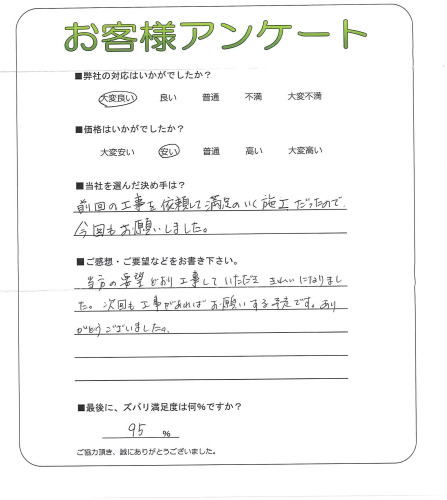 お客様アンケート
■弊社の対応はいかがでしたか？
大変良い 良い 普通 不満 大変不満
■価格はいかがでしたか？
大変安い 安い 普通 高い 大変高い
■当社を選んだ決め手は？
前回の工事を依頼して満足のいく施工だったので、
今回もお願いしました。
■ご感想・ご要望などをお書き下さい。
当方の要望どおり工事していただき きれいになりまし
た。次回も工事があればお願いする予定です。あり
がとうございました。
■最後に、ズバリ満足度は何%ですか？
95 %
ご協力頂き、誠にありがとうございました。